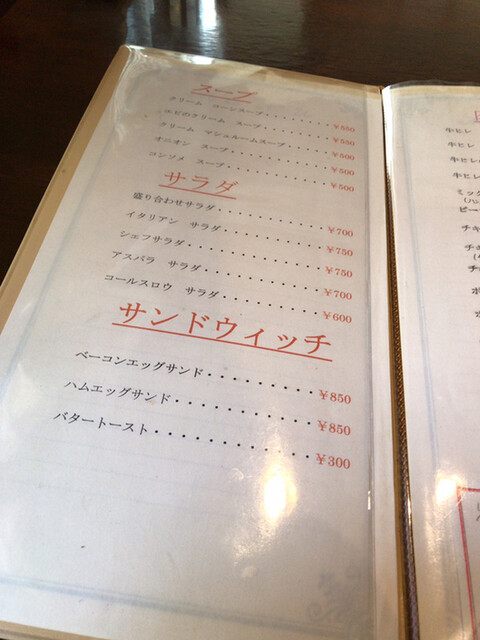 スープ
クリーム コーンスープ・・・・・・・・¥550
エビのクリーム スープ・・・・・・・・¥550
クリーム マシュルームスープ・・・・・¥500
オニオン スープ・・・・・・・・・・・¥500
コンソメ スープ・・・・・・・・・・・¥500
サラダ
盛り合わせサラダ・・・・・・・・・・・¥700
イタリアン サラダ・・・・・・・・・・¥750
シェフサラダ・・・・・・・・・・・・・¥750
アスパラ サラダ・・・・・・・・・・・¥700
コールスロウ サラダ・・・・・・・・・¥600
サンドウィッチ
ベーコンエッグサンド・・・・・・・・・¥850
ハムエッグサンド・・・・・・・・・・・¥850
バタートースト・・・・・・・・・・・・¥300
牛ヒレ
牛ヒレ
牛ヒレの
牛ヒレ
ミック
(ハン
ビー
チキ
チキ
ポ